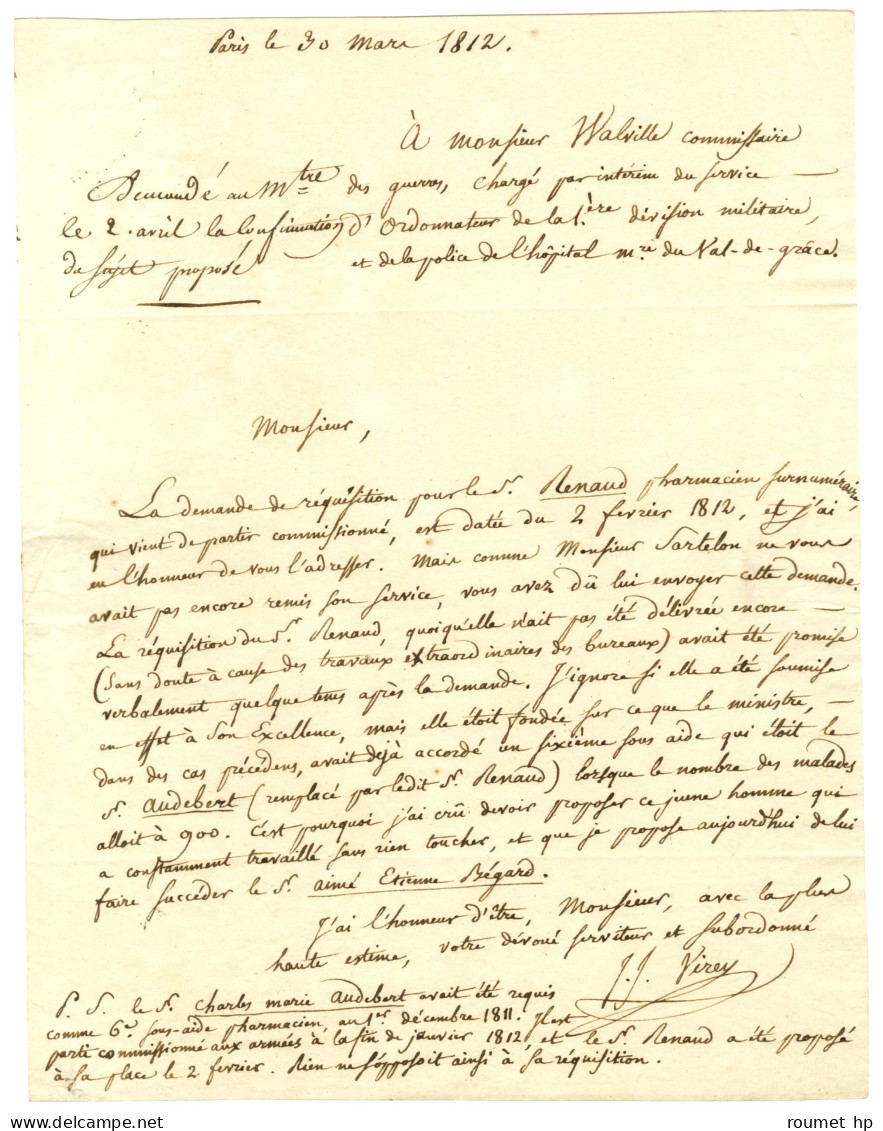 Paris le 30 Mars 1812.
À Monsieur Walville commissaire
des guerres, chargé par intérim du service —
d'Ordonnateur de la 1.ère division militaire,
et de la police de l'hôpital m.re du Val-de-grâce.
Demandé au Mtre
le 2. avril la Confirmation
du sujet proposé
Monsieur,
La demande de réquisition pour le S.r Renaud pharmacien surnuméraire,
qui vient de partir commissionné, est datée du 2 fevrier 1812, et j'ai
eu l'honneur de vous l'adresser. Mais comme Monsieur Sartelon ne vous
avait pas encore remis son service, vous avez dû lui envoyer cette demande.
La réquisition du S.r Renaud, quoiqu'elle n'ait pas été délivrée encore —
(sans doute à cause des travaux extraordinaires des bureaux) avait été promise
verbalement quelque tems après la demande. J'ignore si elle a été soumise
en effet à Son Excellence, mais elle étoit fondée sur ce que le ministre, —
dans des cas précédens, avait déjà accordé un sixième sous aide qui étoit le
S.r Audebert (remplacé par ledit S.r Renaud) lorsque le nombre des malades
alloit à 900. C'est pourquoi j'ai crû devoir proposer ce jeune homme qui
a constamment travaillé sans rien toucher, et que je propose aujourd'hui de lui
faire succéder le S.r aimé Etienne Bégard.
J'ai l'honneur d'être, Monsieur, avec la plus
haute estime, votre dévoué serviteur et subordonné
J. J. Virey
P. S. le S.r Charles marie Audebert avait été requis
comme 6e sous-aide pharmacien, au 1er décembre 1811. Il est
parti commissionné aux armées à la fin de janvier 1812, et le S.r Renaud a été proposé
à sa place le 2 fevrier. Rien ne s'opposoit ainsi à sa réquisition.
roumet hp